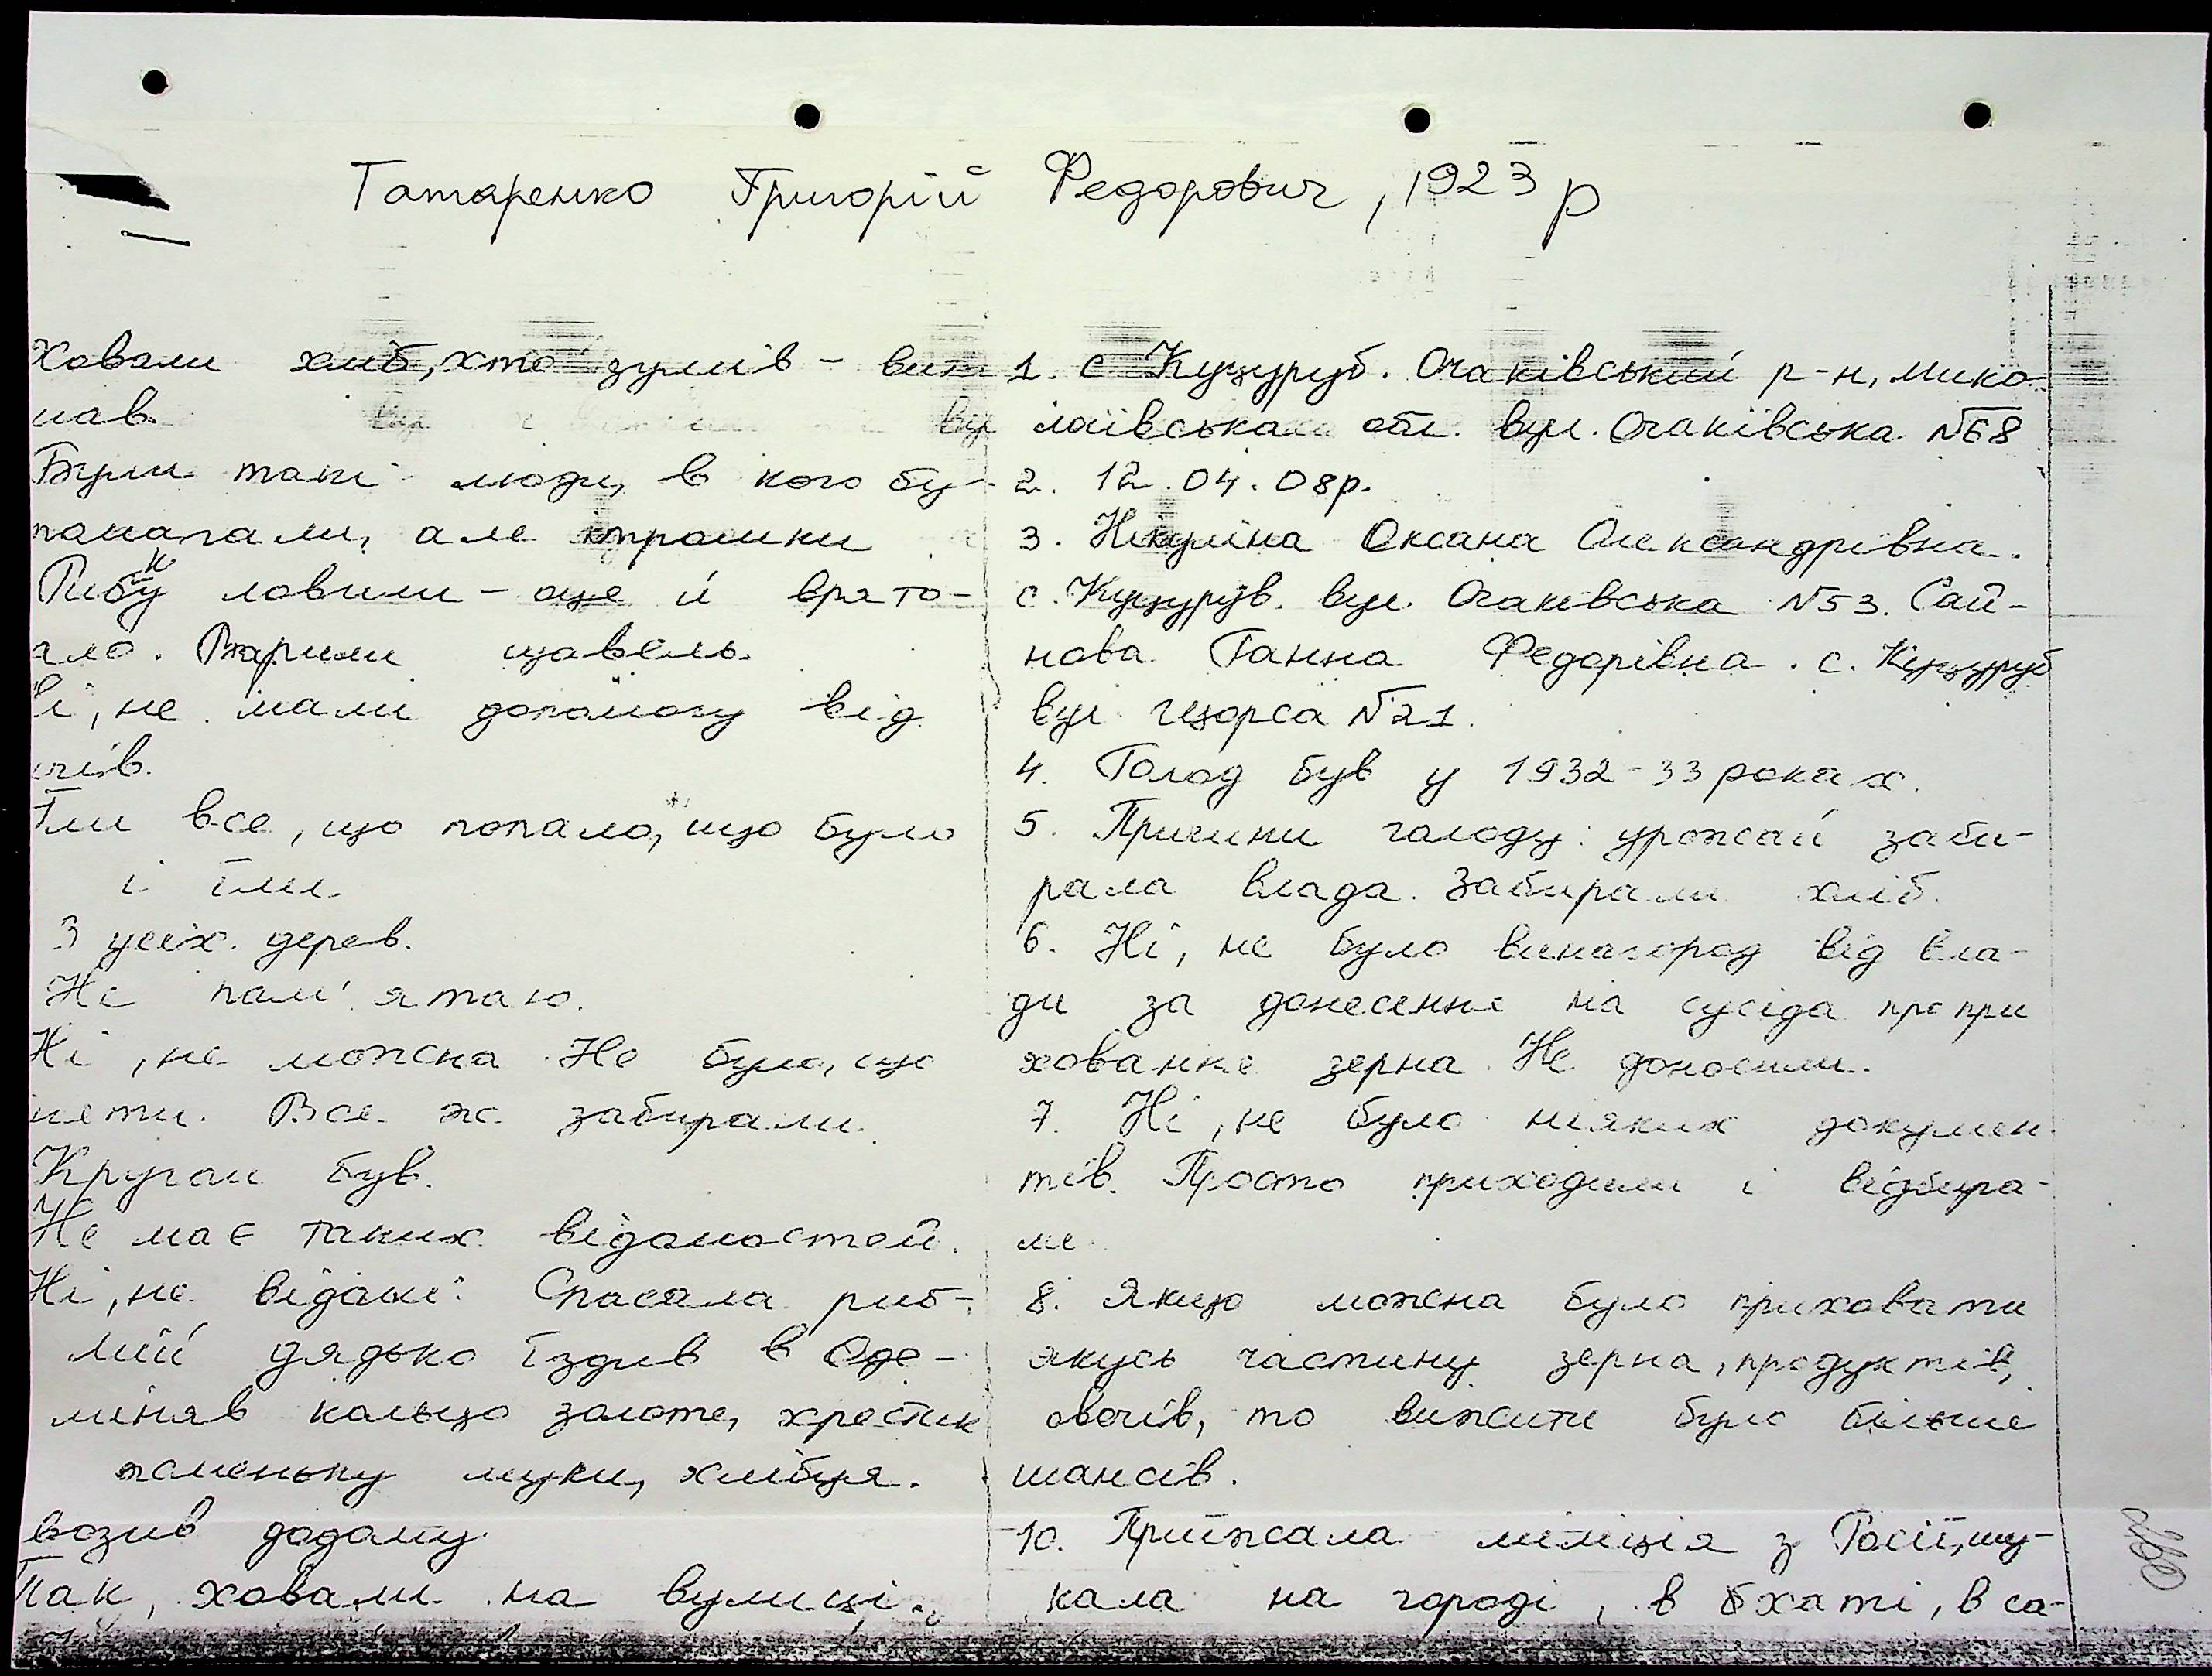 Татаренко Григорій Федорович, 1923 р
Ховали хліб, хто зумів - виж
нав.
Були такі люди, в кого бу-
товали, але трошки
Рибу ловили - оце й врято-
ало. Варили щавель.
і, не мали допомогу від
чів.
їли все, що попало, що було
і їли.
З усіх дерев.
Не пам'ятаю.
Ні, не можна. Не було, що
няти. Все ж забирали.
Кругом був.
Не має таких відомостей.
Ні, не відомі. Спасала риб-
мій дядько їздив в Оде-
міняв кольцо золоте, хрестик
жменьку муки, хлібця.
возив додому.
Так, ховали на вулиці.
1. с Куцуруб. Очаківський р-н, мико
лаївська обл. вул. Очаківська №68
2. 12.04.08р.
3. Нікуліна Оксана Олександрівна.
с. Куцуруб. вул. Очаківська №53. Сай-
нова Ганна Федорівна. с. Куцуруб
вул щорса №21.
4. Голод був у 1932-33 роках.
5. Причини голоду: урожай заби-
рала влада. Забирали хліб.
6. Ні, не було винагород від вла-
ди за донесення на сусіда про при
ховання зерна. Не доносили.
7. Ні, не було ніяких докумен
тів. Просто приходили і відбира-
ли.
8. Якщо можна було приховати
якусь частину зерна, продуктів,
овочів, то вижити було більше
шансів.
10. Приїжжала міліція з Росії, шу-
кала на городі, в хаті, в са-